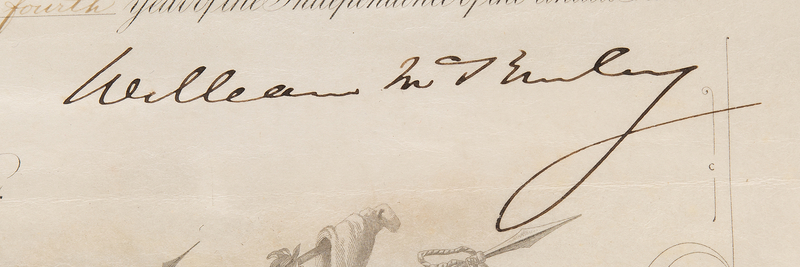 fourth year of the Independence of the United
William McKinley